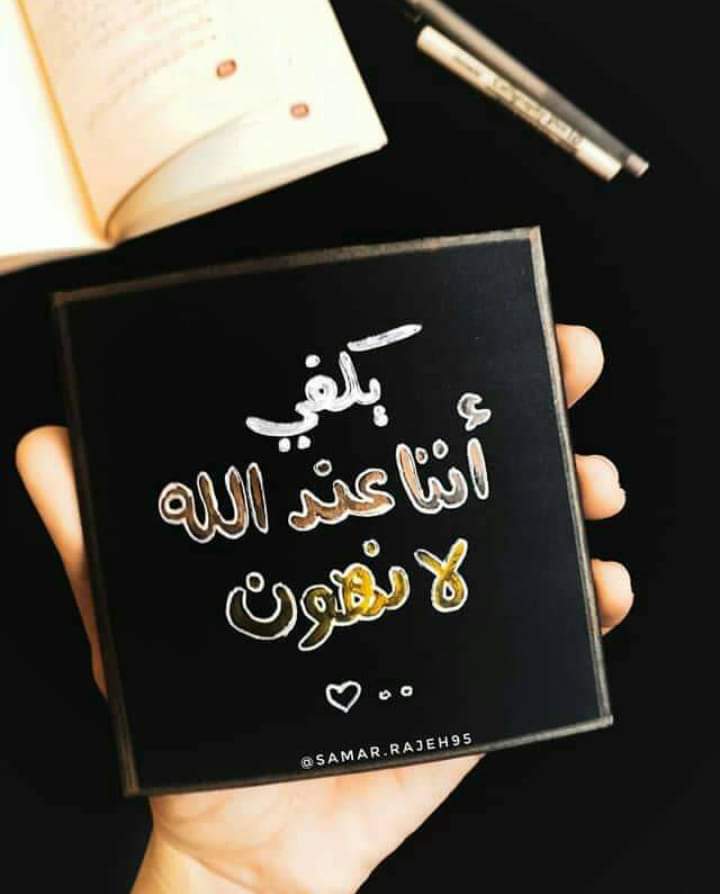 يكفي
أننا عند الله
لا نهون
@SAMAR.RAJEH95